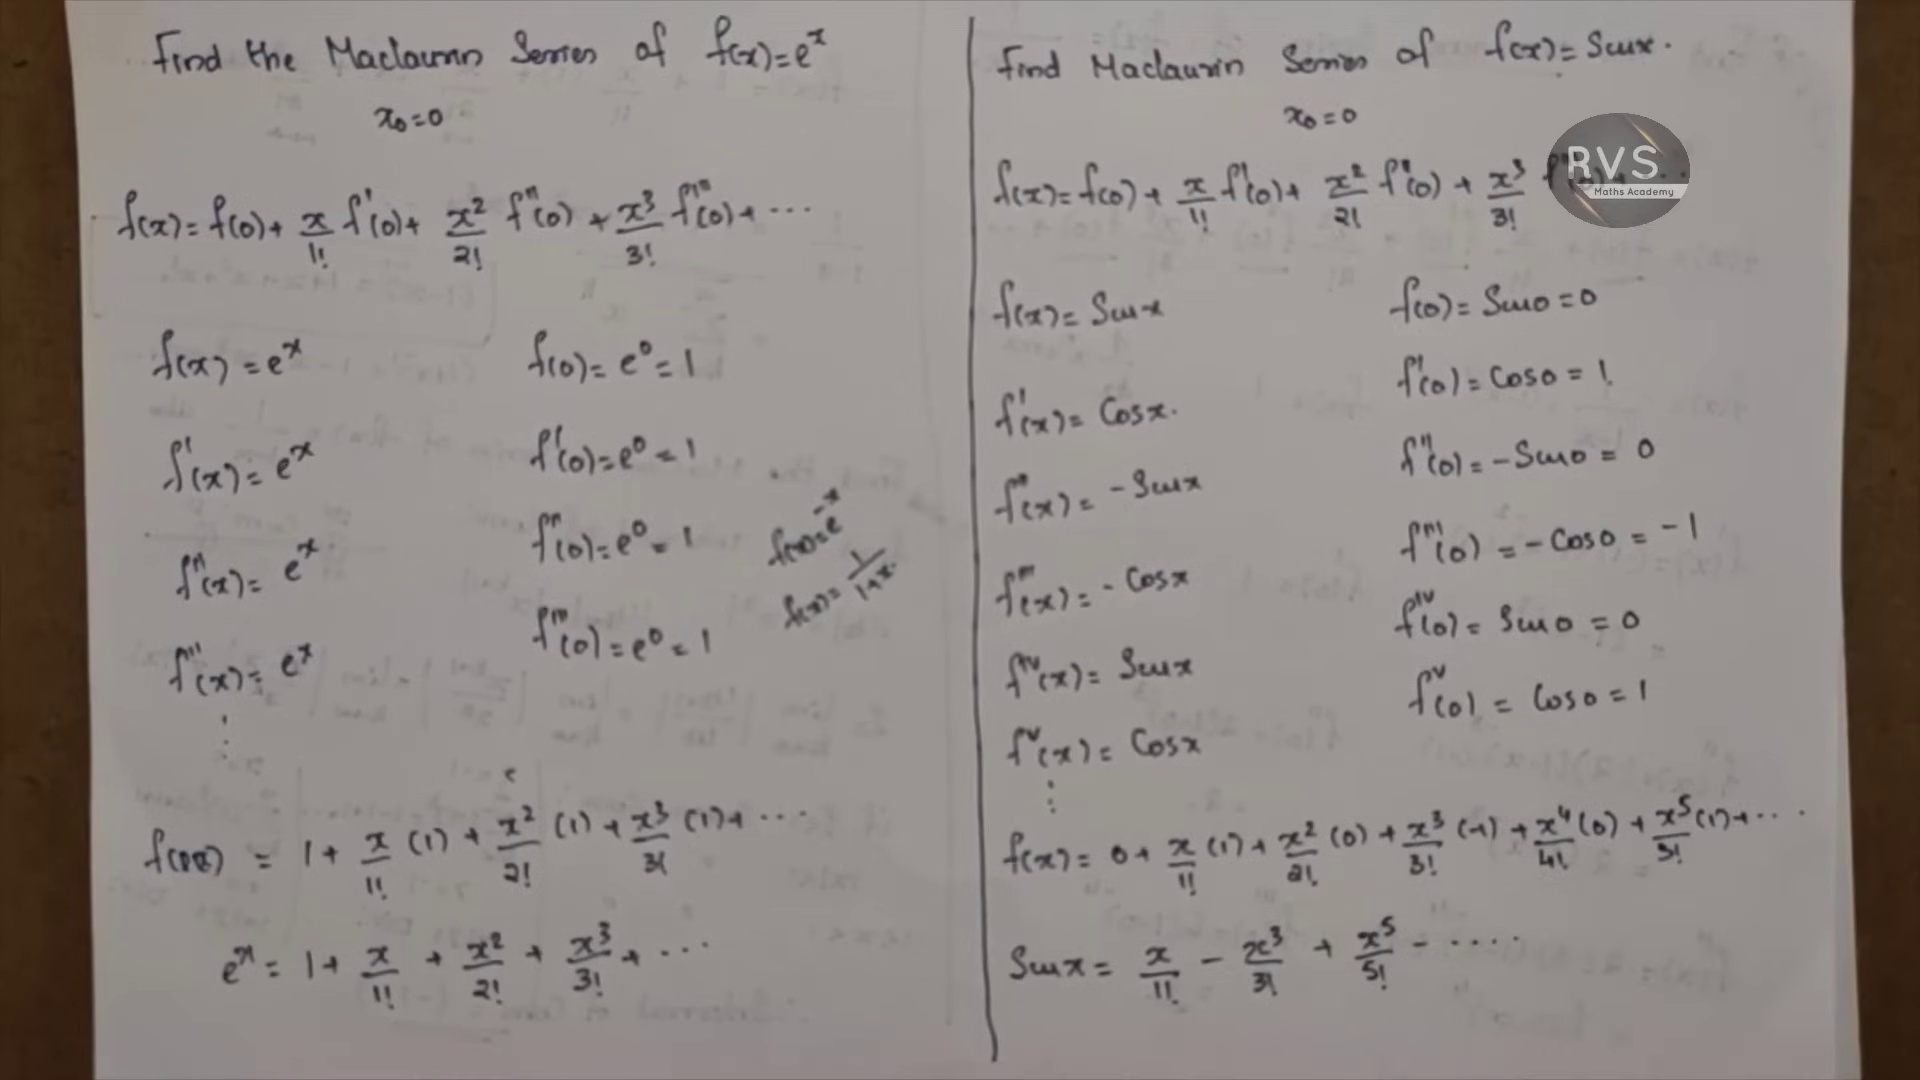 Find the Maclaurin Series of f(x)=eˣ
x₀=0
f(x)= f(0)+ x/1! f'(0)+ x²/2! f''(0) + x³/3! f'''(0)+ ...
f(x) = eˣ    f(0)= e⁰= 1
f'(x)= eˣ    f'(0)=e⁰ = 1
f''(x)= eˣ    f''(0)=e⁰ = 1
f'''(x)= eˣ    f'''(0)=e⁰ = 1
⋮
f(x)=e⁻ˣ
f(x)= 1/1+x.
= 1+ x/1! (1) + x²/2! (1) + x³/3! (1)+ ...
eˣ= 1+ x/1! + x²/2! + x³/3! + ...
Find Maclaurin Series of f(x)= Sinx.
x₀=0
RVS
Maths Academy
f(x)= f(0)+ x/1! f'(0)+ x²/2! f''(0) + x³/3!
f(x)= Sinx    f(0)= Sin0 =0
f'(x)= Cosx.    f'(0)= Cos0 = 1.
f''(x)= -Sinx    f''(0)= -Sin0 = 0
f'''(x)= - Cosx    f'''(0) = - Cos0 = -1
fⁱᵛ(x)= Sinx    fⁱᵛ(0)= Sin0 = 0
fᵛ(x)= Cosx    fᵛ(0) = Cos0 = 1
⋮
f(x)= 0+ x/1! (1)+ x²/2! (0) + x³/3! (-1) + x⁴/4! (0) + x⁵/5! (1)+ ...
Sinx = x/1! - x³/3! + x⁵/5! - ....